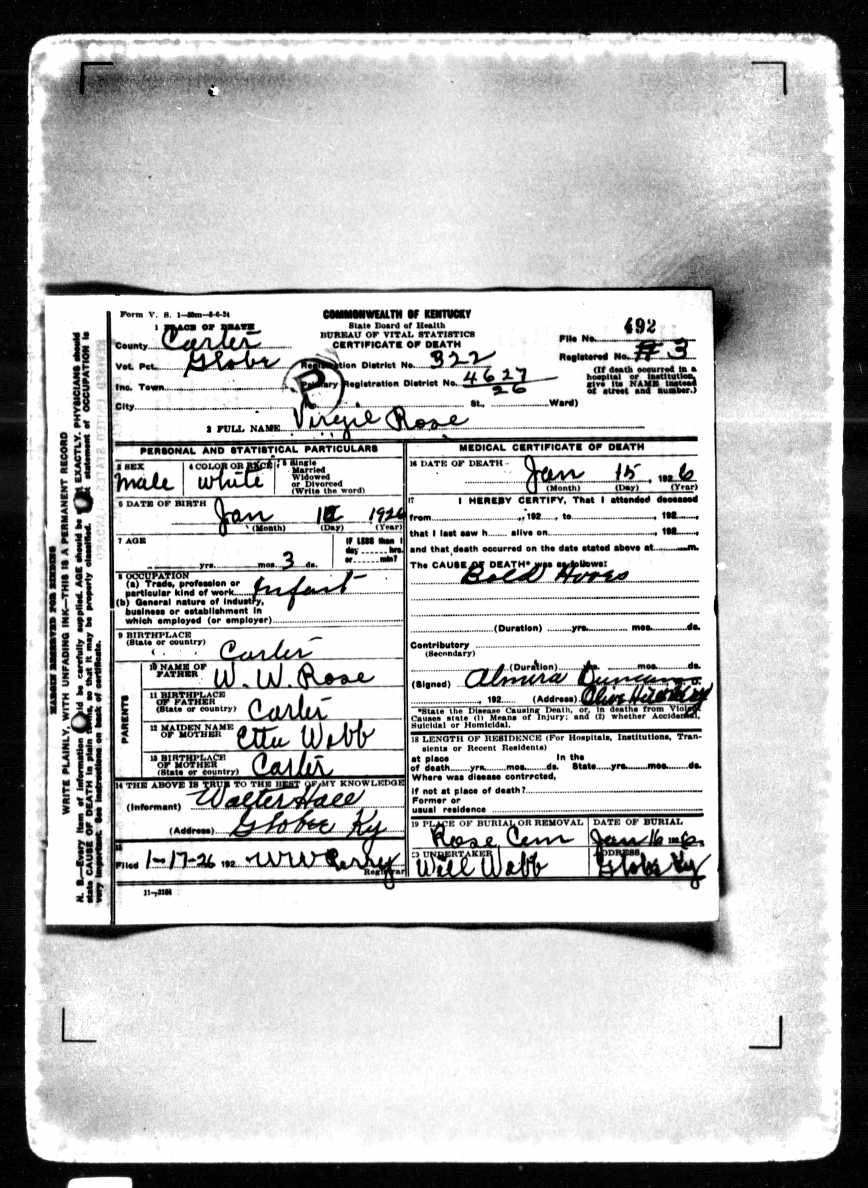 Form V. S. 1—50m—5-6-24
COMMONWEALTH OF KENTUCKY
State Board of Health
BUREAU OF VITAL STATISTICS
CERTIFICATE OF DEATH
1 PLACE OF DEATH
County Carter
Vot. Pct. Globe
Inc. Town
City
Registration District No. 322
Primary Registration District No. 4627
26
St., Ward)
File No. 492
Registered No. # 3
(If death occurred in a
hospital or institution,
give its NAME instead
of street and number.)
2 FULL NAME Virgil Rose
PERSONAL AND STATISTICAL PARTICULARS
3 SEX
male
4 COLOR OR RACE
white
5 Single
Married
Widowed
or Divorced
(Write the word)
6 DATE OF BIRTH
Jan 1926
(Month) (Day) (Year)
7 AGE
yrs. mos. 3 ds.
IF LESS than 1
day hrs.
or min?
8 OCCUPATION
(a) Trade, profession or
particular kind of work Infant
(b) General nature of industry,
business or establishment in
which employed (or employer)
9 BIRTHPLACE
(State or country)
Carter
PARENTS
10 NAME OF
FATHER W. W. Rose
11 BIRTHPLACE
OF FATHER
(State or country) Carter
12 MAIDEN NAME
OF MOTHER Etta Webb
13 BIRTHPLACE
OF MOTHER
(State or country) Carter
14 THE ABOVE IS TRUE TO THE BEST OF MY KNOWLEDGE
(Informant) Walter Hall
(Address) Globe Ky
15
Filed 1-17-26 192 W W Perry
Registrar
11—3184
MEDICAL CERTIFICATE OF DEATH
16 DATE OF DEATH
Jan 15, 1926
(Month) (Day) (Year)
17 I HEREBY CERTIFY, That I attended deceased
from , 192 , to , 192 ,
that I last saw h alive on , 192 ,
and that death occurred on the date stated above at m.
The CAUSE OF DEATH* was as follows:
Bold Hives
(Duration) yrs. mos. ds.
Contributory
(Secondary)
(Duration) yrs. mos. ds.
(Signed) Almira Duncan
, 192 (Address) Olive Hill Ky
*State the Disease Causing Death, or, in deaths from Violent
Causes state (1) Means of Injury; and (2) whether Accidental,
Suicidal or Homicidal.
18 LENGTH OF RESIDENCE (For Hospitals, Institutions, Tran-
sients or Recent Residents)
At place In the
of death yrs. mos. ds. State yrs. mos. ds.
Where was disease contrected,
if not at place of death?
Former or
usual residence
19 PLACE OF BURIAL OR REMOVAL
Rose Cem
DATE OF BURIAL
Jan 16 1926
20 UNDERTAKER
Will Webb
ADDRESS
Globe Ky
MARGIN RESERVED FOR BINDING
WRITE PLAINLY, WITH UNFADING INK—THIS IS A PERMANENT RECORD
N. B.—Every item of information should be carefully supplied. AGE should be stated EXACTLY. PHYSICIANS should
state CAUSE OF DEATH in plain terms, so that it may be properly classified. Exact statement of OCCUPATION is
very important. See instructions on back of certificate.